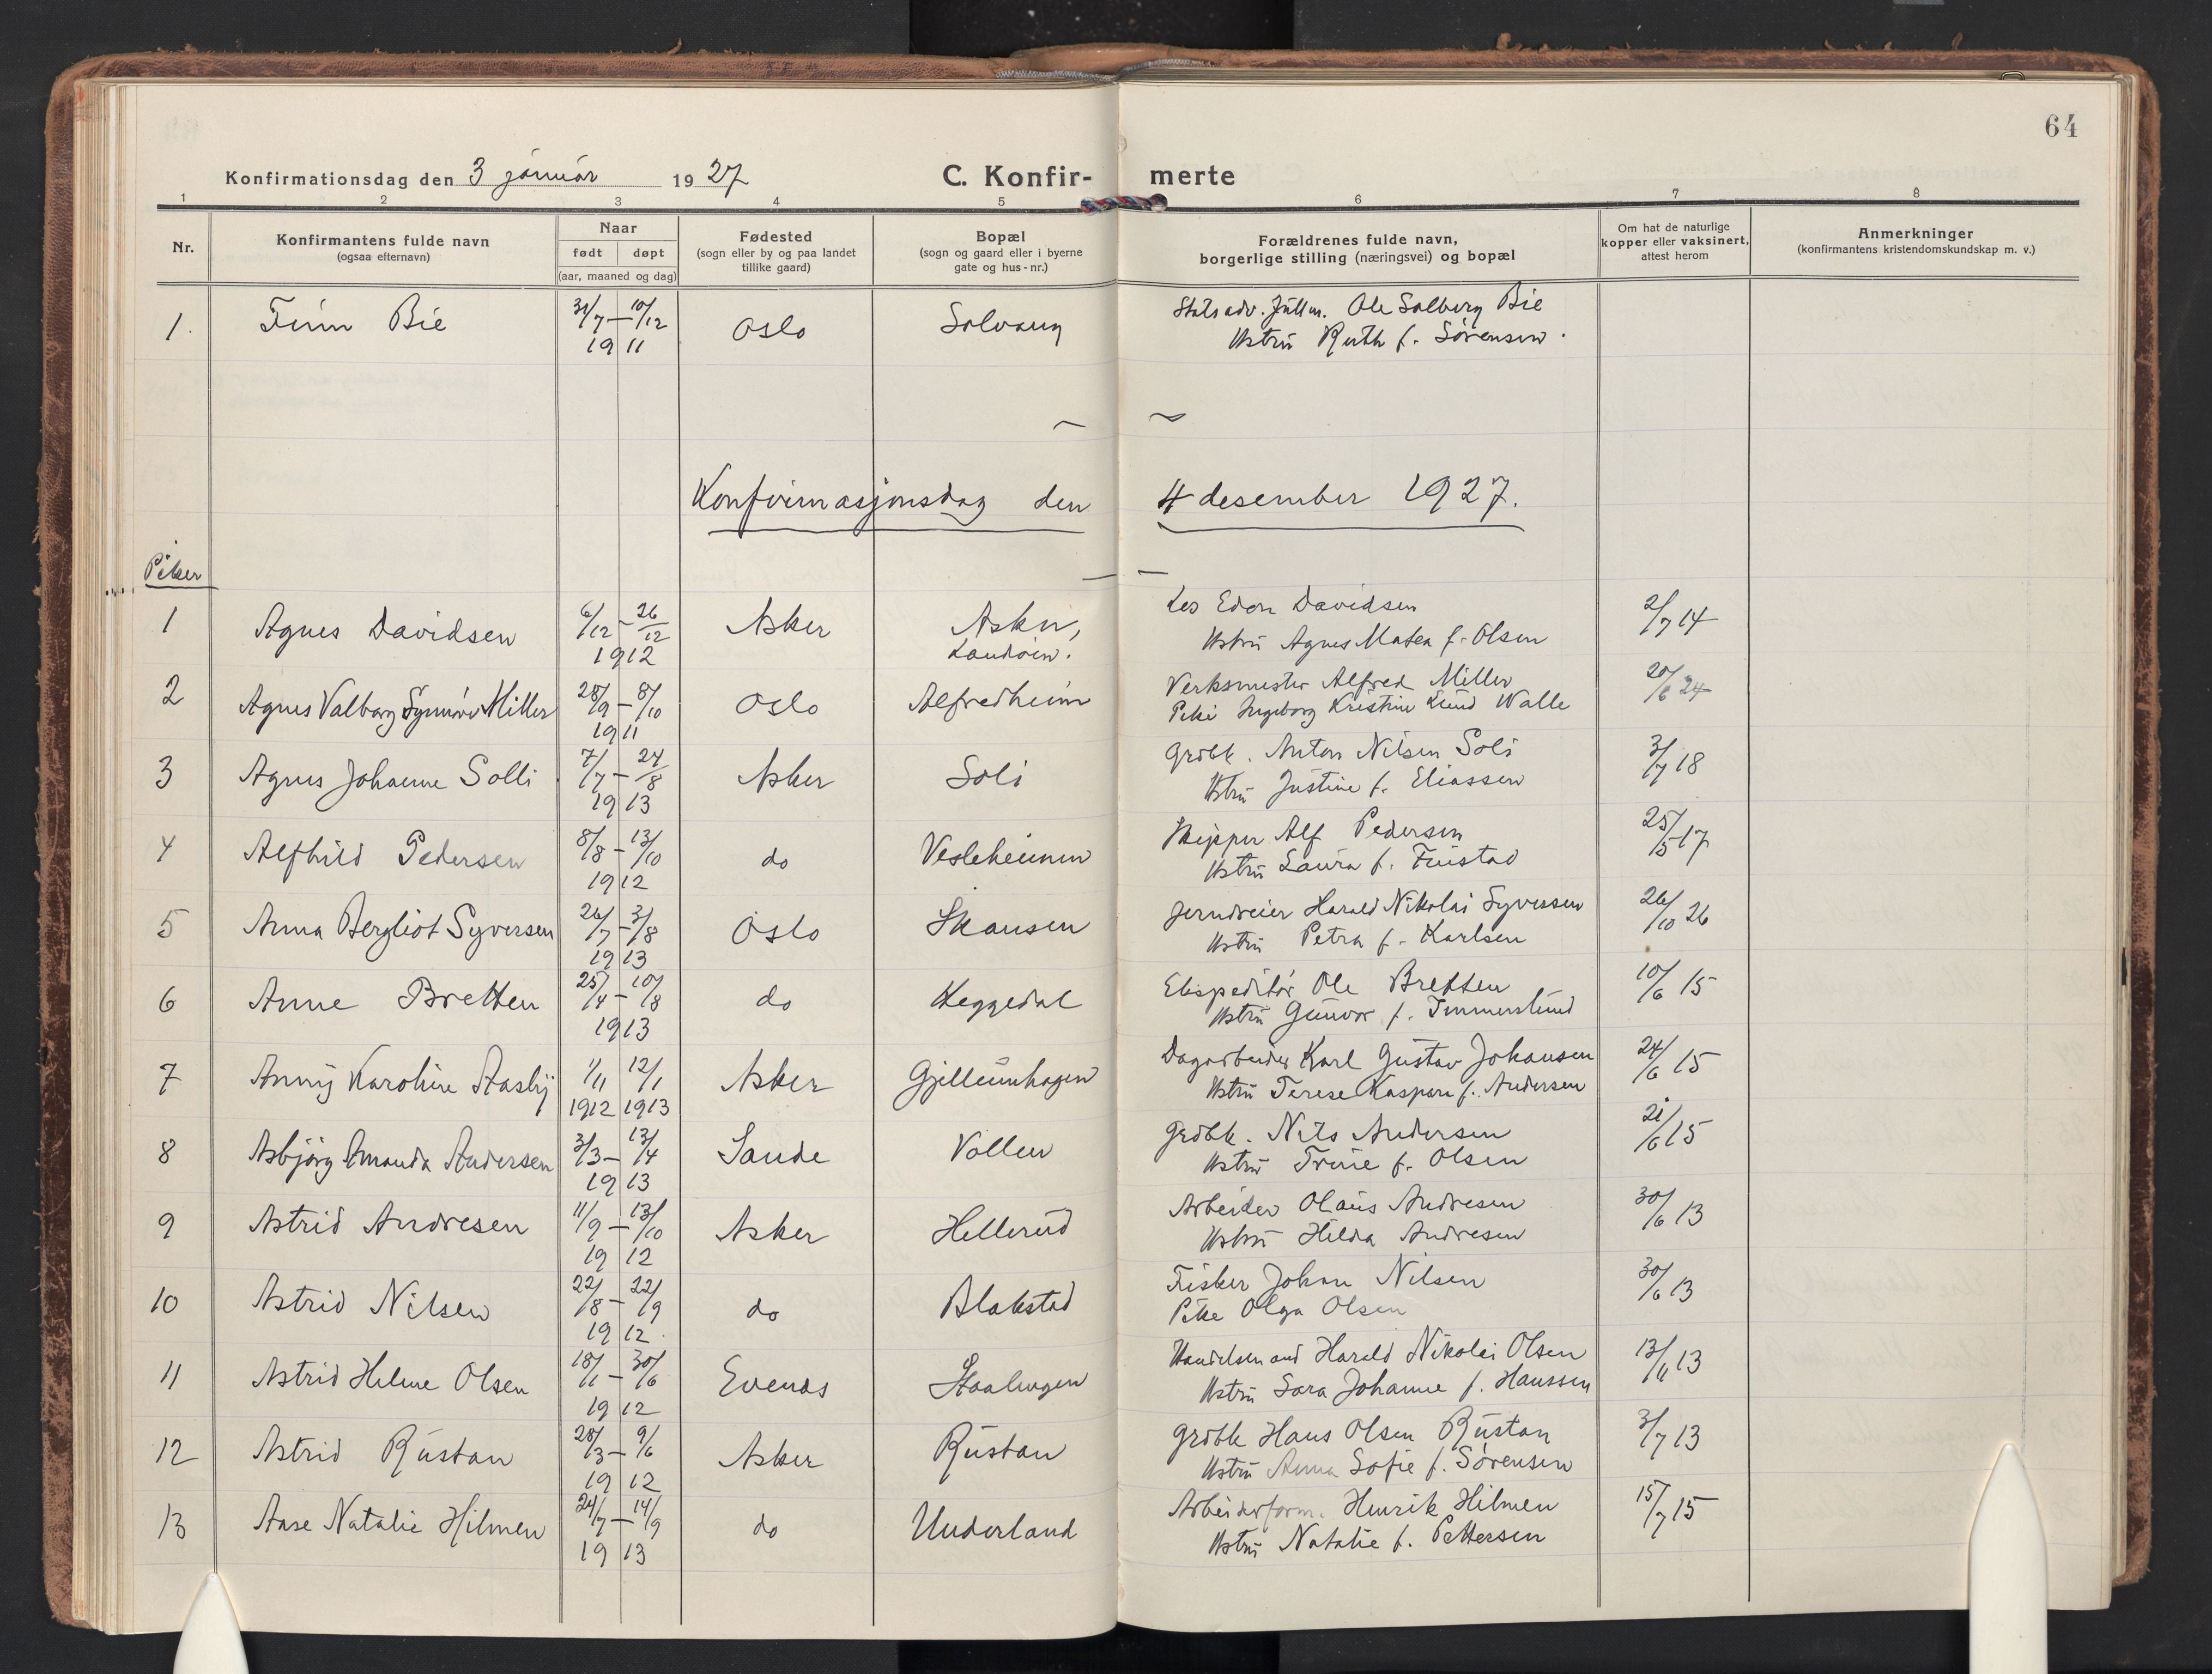 64
Konfirmationsdag den 3 januar 1927
C. Konfir- merte
1 2 3 4 5 6 7 8
Nr.
Konfirmantens fulde navn
(ogsaa efternavn)
Naar
født døpt
(aar, maaned og dag)
Fødested
(sogn eller by og paa landet
tillike gaard)
Bopæl
(sogn og gaard eller i byerne
gate og hus-nr.)
Forældrenes fulde navn,
borgerlige stilling (næringsvei) og bopæl
Om hat de naturlige
kopper eller vaksinert,
attest herom
Anmerkninger
(konfirmantens kristendomskundskap m. v.)
1. Finn Bie 31/7 – 10/12 Oslo Solvang Ole Solberg Bie
1911 Hstru Ruth f. Sørensen.
Konfirmasjonsdag den 4 desember 1927.
Piker
1 Agnes Davidsen 6/12 – 26/12 Asker Asker, Edon Davidsen 2/7 14
1912 Landøen. Hstru Agnes Matea f. Olsen
2 Agnes Valborg Synnøve Miller 28/9 – 8/10 Oslo Alfredheim Verksmester Alfred Miller 20/6 24
1911 Pike Ingeborg Kristine Lund Walle
3 Agnes Johanne Solli 7/7 – 24/8 Asker Soli Grdbk. Anton Nilsen Soli 3/7 18
1913 Hstru Justine f. Eliassen
4 Alfhild Pedersen 8/8 – 13/10 do Vesleheimen Skipper Alf Pedersen 25/5 17
1912 Hstru Laura f. Finstad
5 Anna Bergliot Syversen 26/7 – 3/8 Oslo Skansen Jerndreier Harald Nikolai Syversen 26/10 26
1913 Hstru Petra f. Karlsen
6 Anne Bretten 25/4 – 10/8 do Heggedal Ekspeditør Ole Bretten 10/6 15
1913 Hstru Gunvor f. Immerslund
7 Anny Karoline Aasby 1/11 12/1 Asker Gjellumhagen Dagarbeider Karl Gustav Johansen 24/6 15
1912 1913 Hstru Terese Kaspara f. Andersen
8 Asbjørg Amanda Andersen 3/3 – 13/4 Sande Vollen Grdbk. Nils Andersen 21/6 15
1913 Hstru Trine f. Olsen
9 Astrid Andresen 11/9 – 13/10 Asker Hellerud Arbeider Olaus Andresen 30/6 13
1912 Hstru Hilda Andresen
10 Astrid Nilsen 22/8 – 22/9 do Blakstad Fisker Johan Nilsen 30/6 13
1912. Pike Olga Olsen
11 Astrid Helene Olsen 18/1 – 30/6 Evenes Harald Nikolai Olsen 13/11 13
1912 Hstru Sara Johanne f. Hanssen
12 Astrid Rustan 28/3 – 9/6 Asker Rustan Grdbk Hans Olsen Rustan 3/7 13
1912 Hstru Anna Sofie f. Sørensen
13 Aase Natalie Hilmen 24/7 – 14/9 do Underland Arbeiderform. Henrik Hilmen 15/7 15
1913 Hstru Natalie f. Pettersen